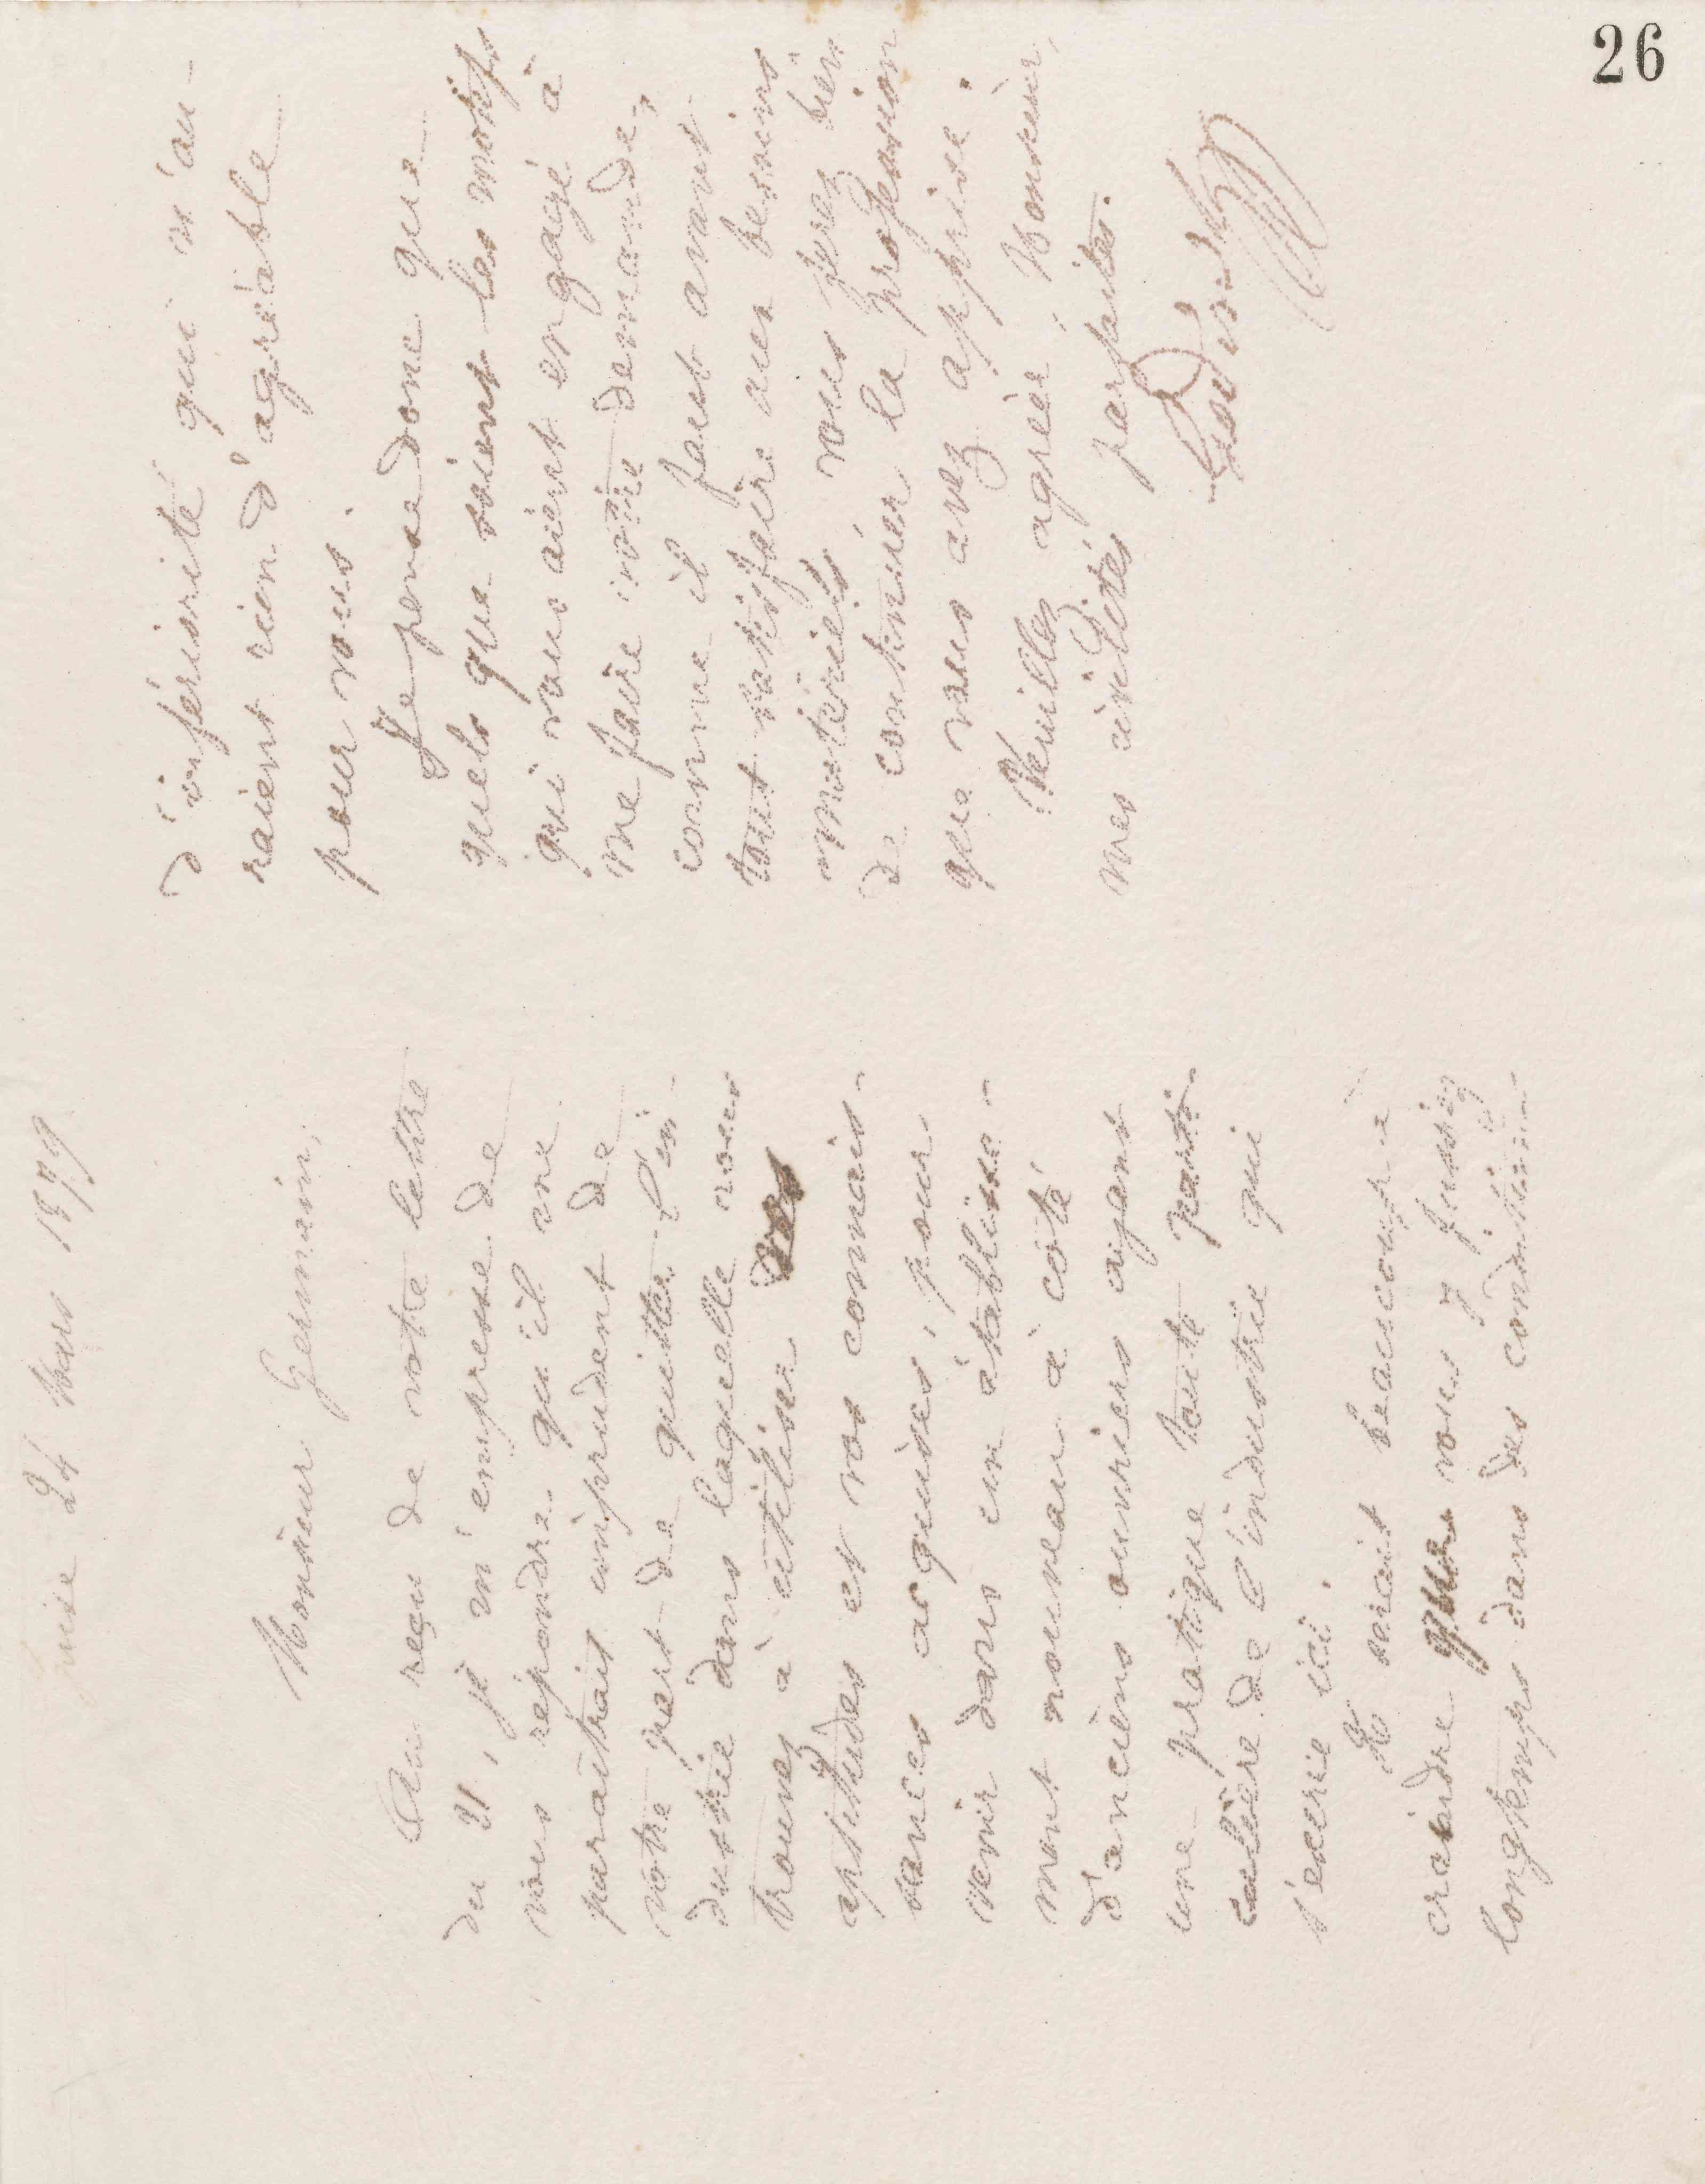 26
Guise 24 Mars 1879
Monsieur Germain,
Au reçu de votre lettre
du 21, je m'empresse de
vous répondre qu'il me
paraîtrait imprudent de
votre part de quitter l'in-
dustrie dans laquelle vous
trouvez à utiliser vos
aptitudes et vos connais-
sances acquises, pour
venir dans un établisse-
ment nouveau à côté
d'anciens ouvriers ayant
une pratique toute parti-
culière de l'industrie qui
s'exerce ici.
Il serait beaucoup à
craindre que vous y fussiez
longtemps dans des conditions
d'infériorité qui n'au-
raient rien d'agréable
pour vous.
Je pense donc que
quels que soient les motifs
qui vous aient engagé à
me faire votre demande,
comme il faut avant
tout satisfaire aux besoins
matériels, vous ferez bien
de continuer la profession
que vous avez apprise.
Veuillez agréer, Monsieur,
mes civilités parfaites.
Godin